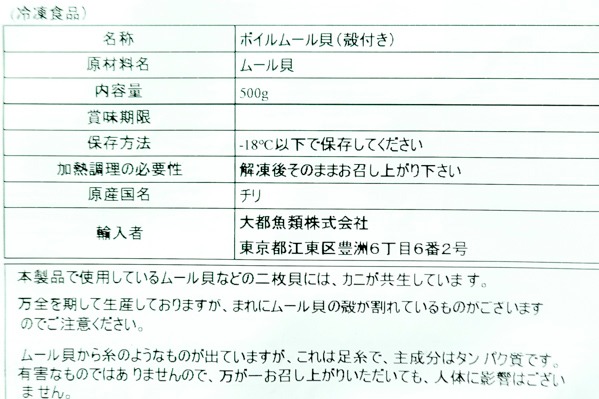 (冷凍食品)
名称 ボイルムール貝(殻付き)
原材料名 ムール貝
内容量 500g
賞味期限
保存方法 -18℃以下で保存してください
加熱調理の必要性 解凍後そのままお召し上がり下さい
原産国名 チリ
輸入者 大都魚類株式会社
東京都江東区豊洲6丁目6番2号
本製品で使用しているムール貝などの二枚貝には、カニが共生しています。
万全を期して生産しておりますが、まれにムール貝の殻が割れているものがございます
のでご注意ください。
ムール貝から糸のようなものが出ていますが、これは足糸で、主成分はタンパク質です。
有害なものではありませんので、万が一お召し上がりいただいても、人体に影響はござい
ません。